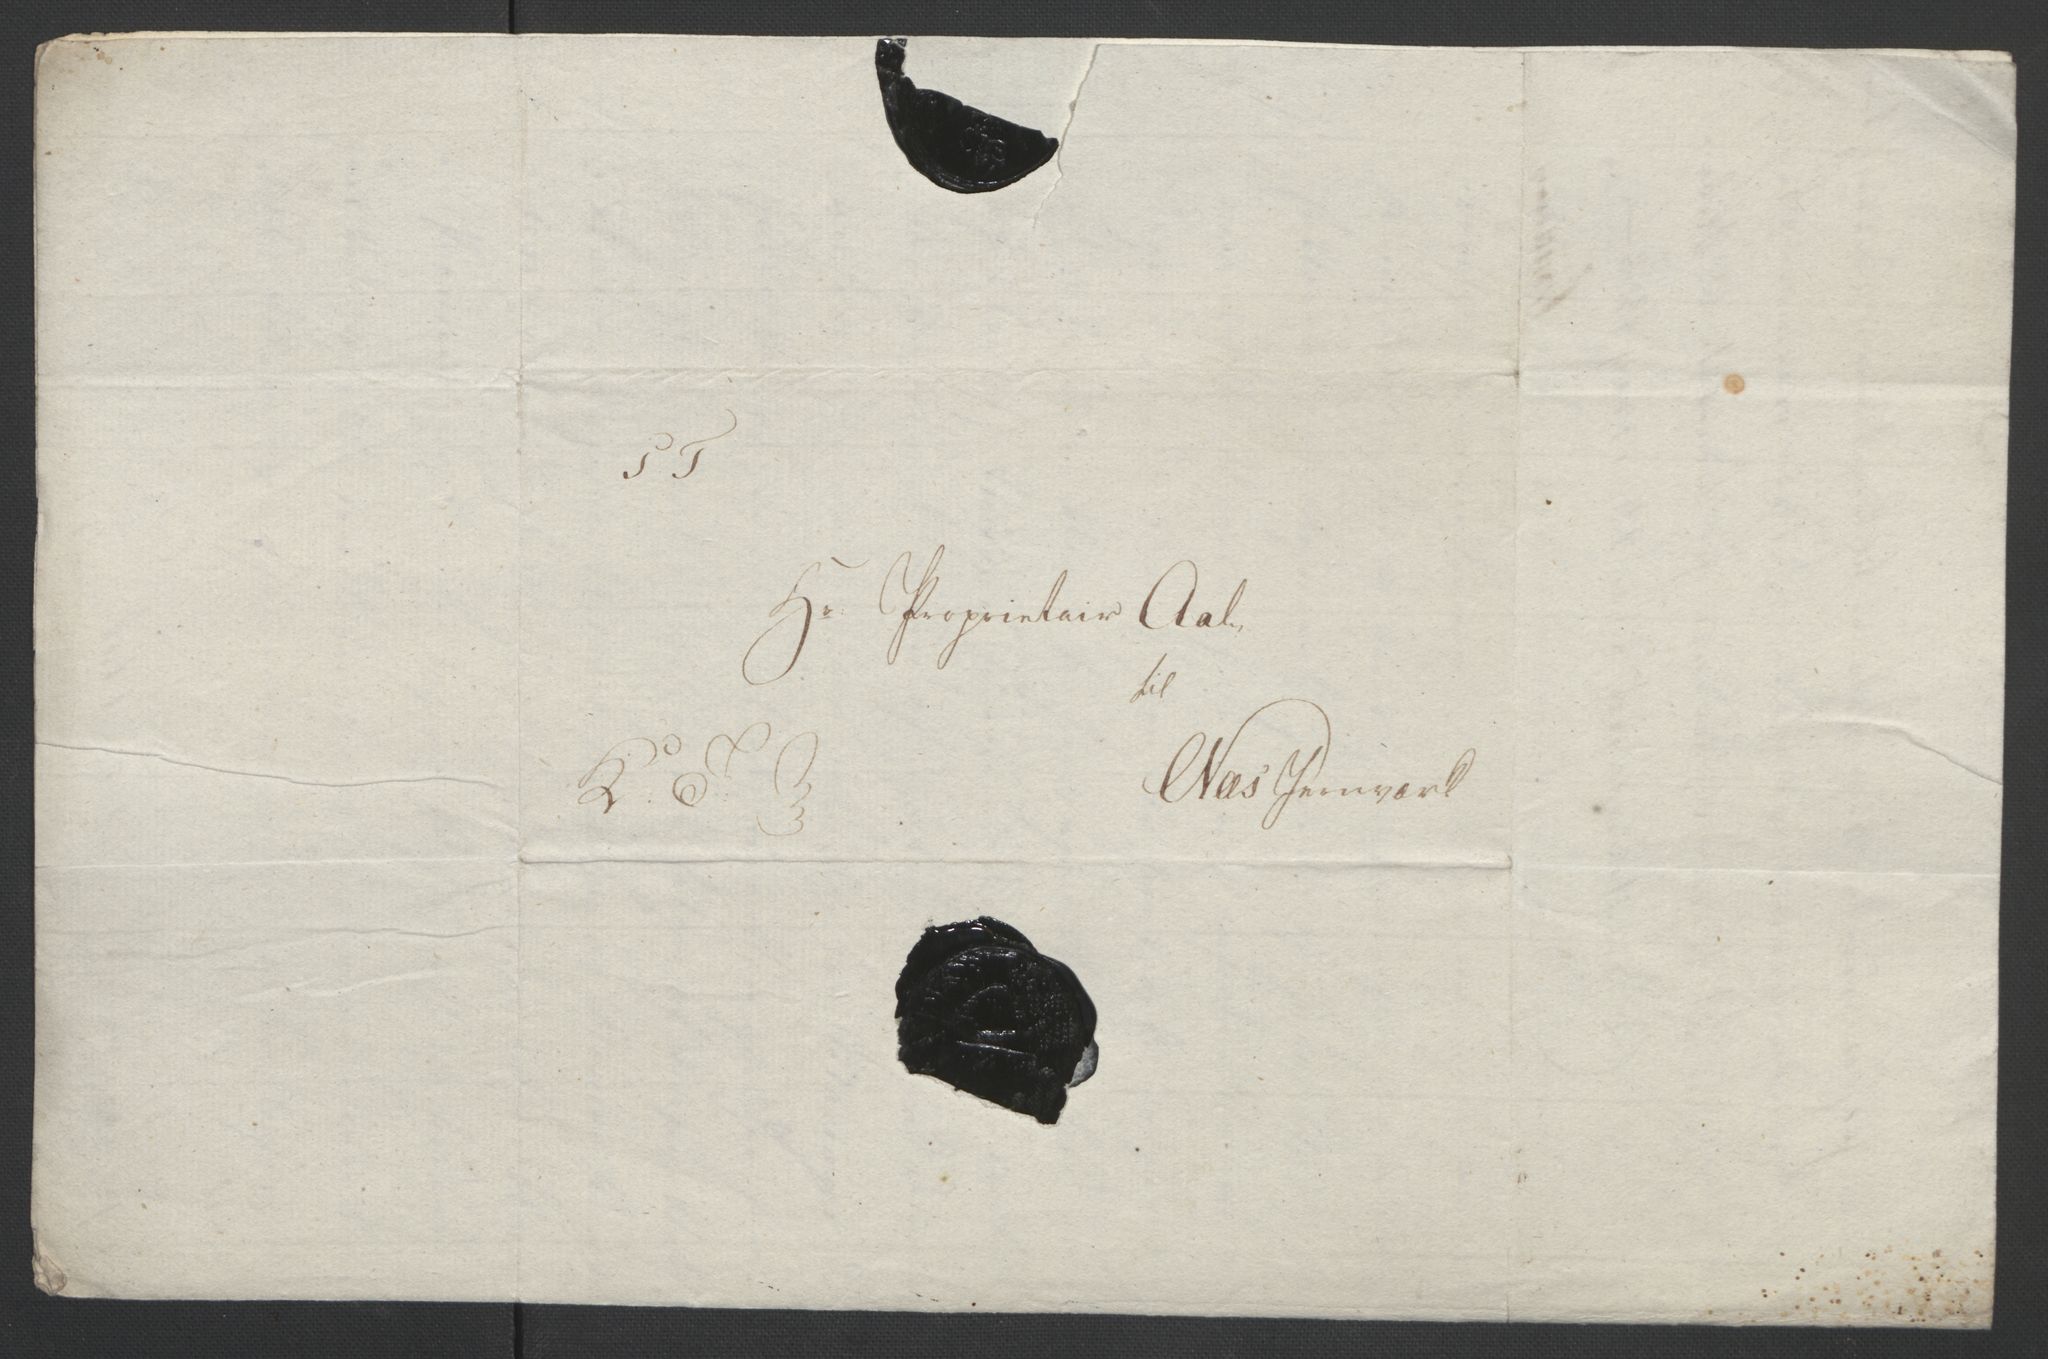 S T
Hr. Proprietair Aal,
til
Næs Jernværk